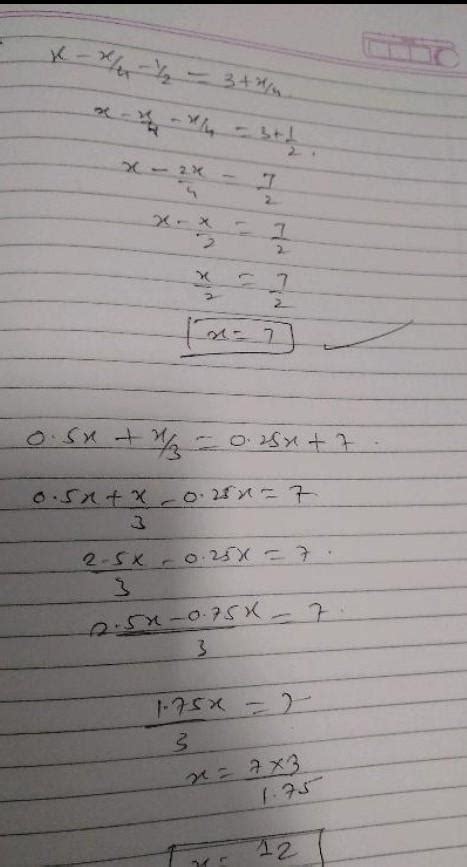 x - x/4 - 1/2 = 3 + x/4
x - x/4 - x/4 = 3 + 1/2.
x - 2x/4 = 7/2
x - x/2 = 7/2
x/2 = 7/2
x = 7
0.5x + x/3 = 0.25x + 7.
0.5x + x/3 - 0.25x = 7
2.5x/3 - 0.25x = 7.
2.5x - 0.75x/3 = 7.
1.75x/3 = 7
x = 7×3/1.75
x = 12